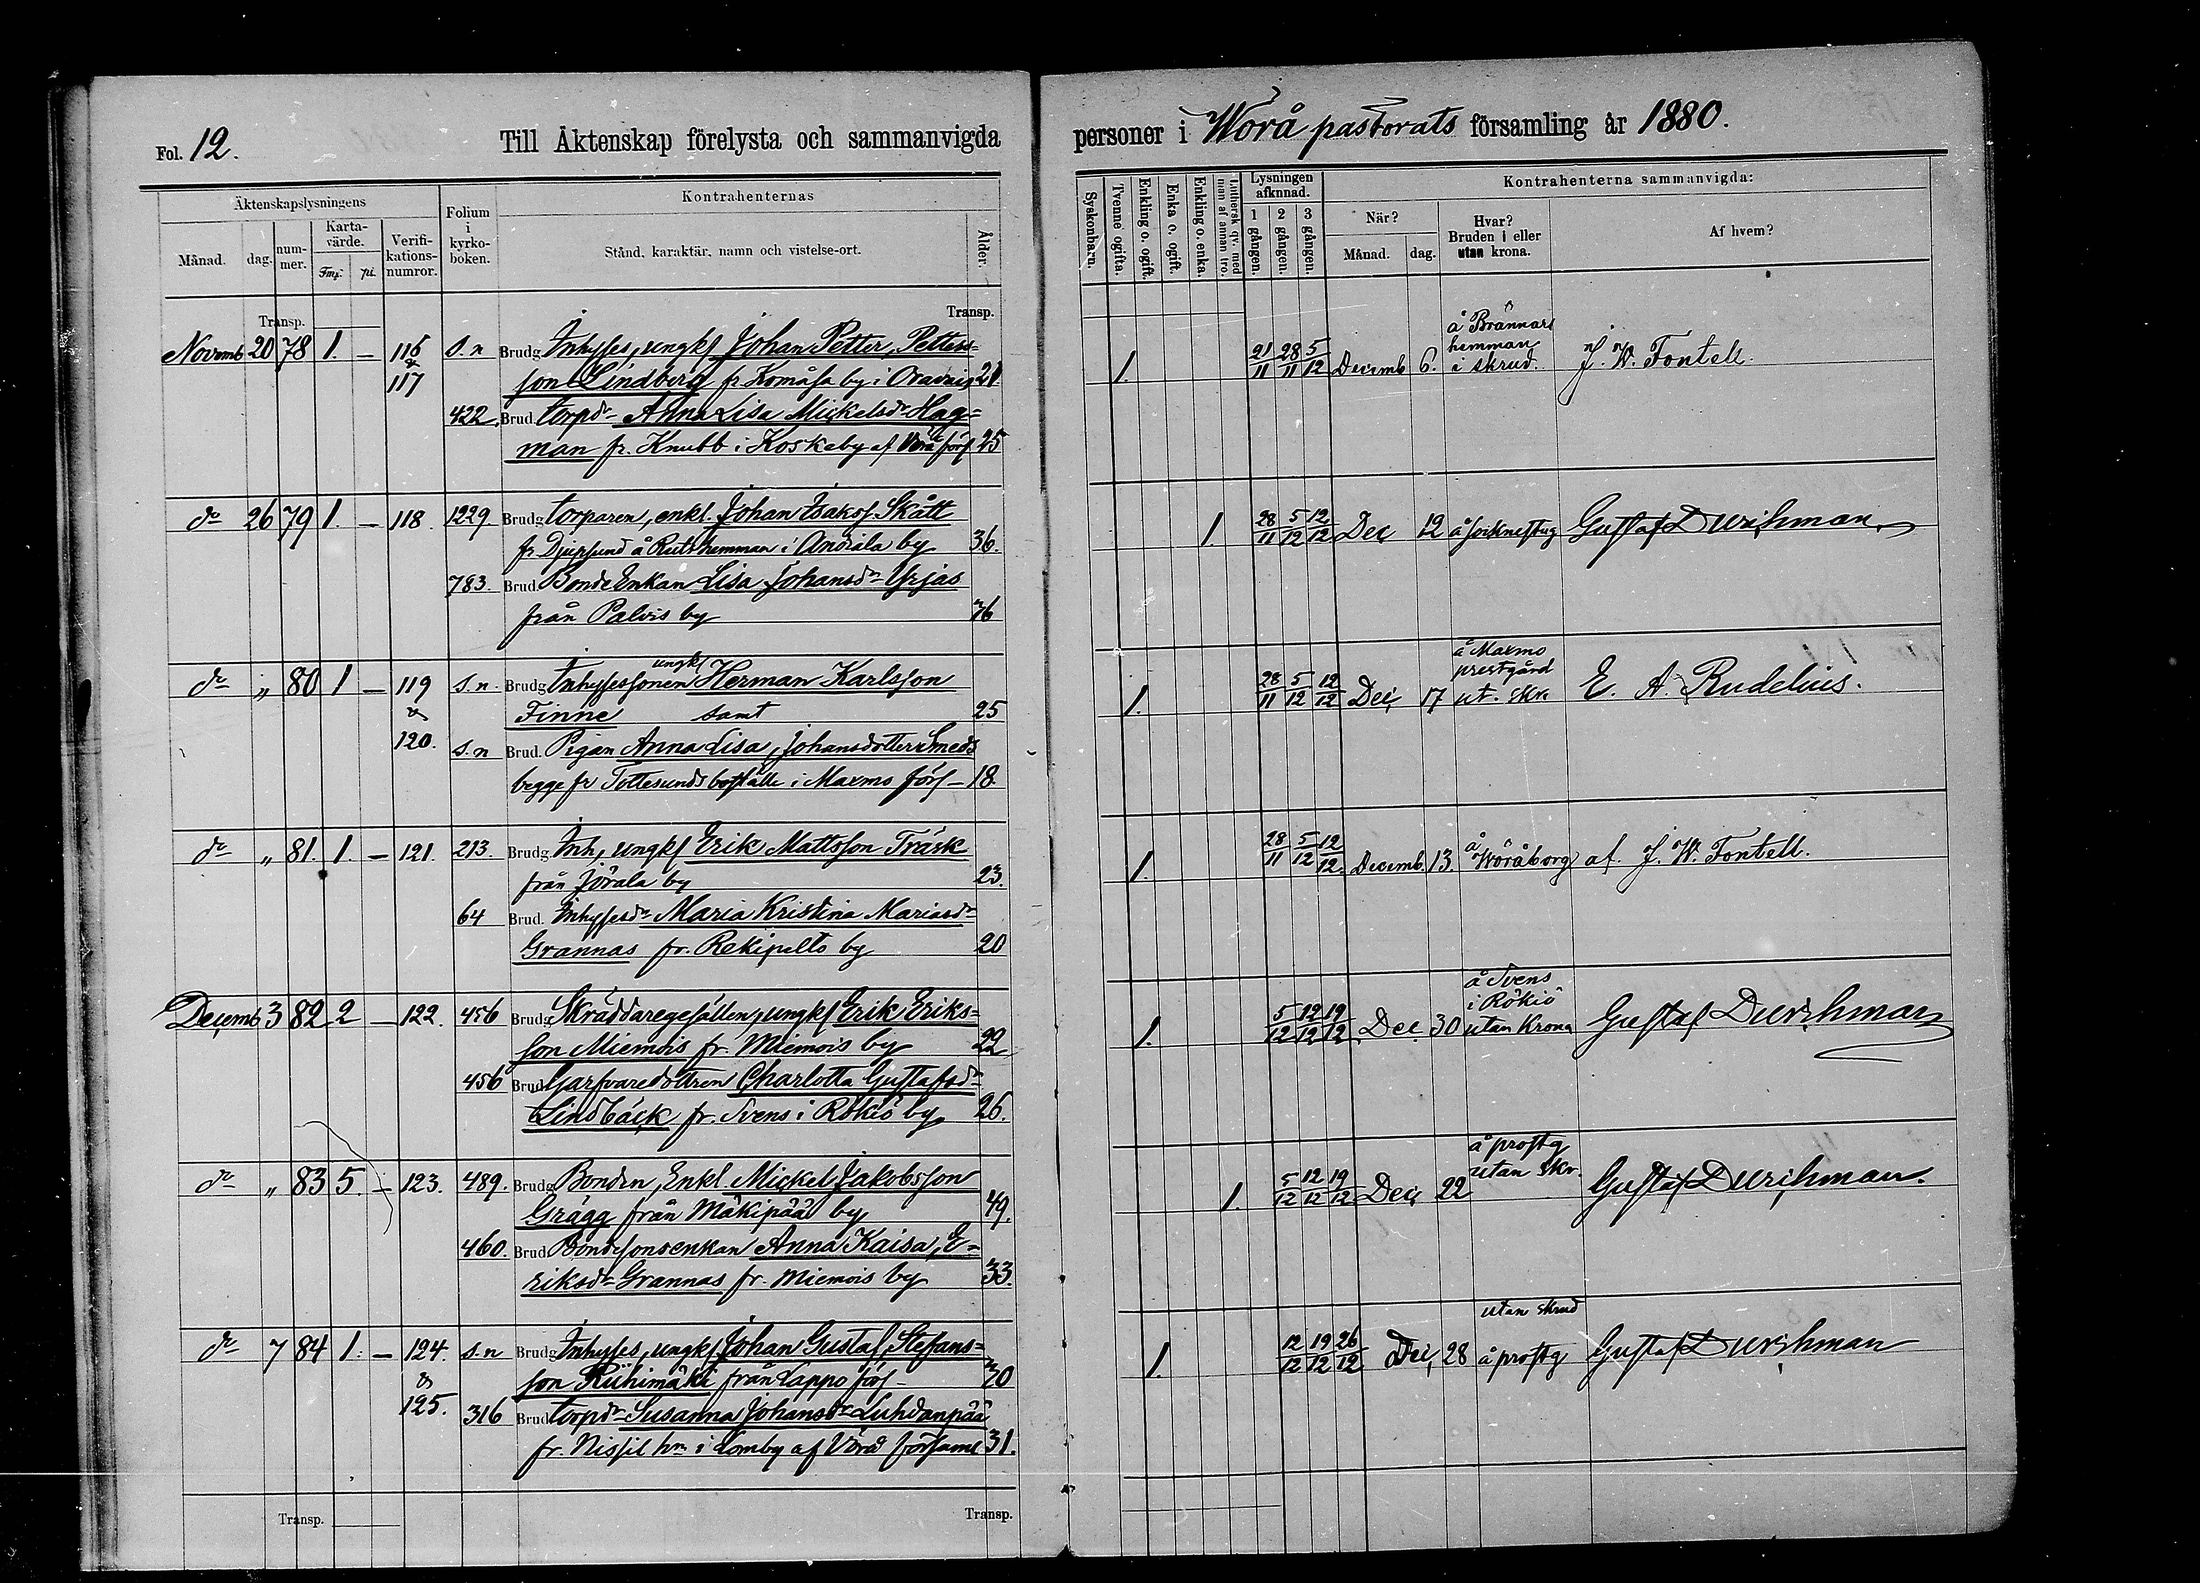 Fol. 12.
Till Äktenskap förelysta och sammanvigda
personer i Wörå pastorats församling år 1880.
Äktenskapslysningens
Månad.
dag.
num-
mer.
Karta-
värde.
Fmf:
pi.
Verifi-
kations-
numror.
Folium
i
kyrko-
boken.
Kontrahenternas
Stånd, karaktär, namn och vistelse-ort.
Ålder.
Syskonbarn.
Tvenne ogifta.
Enkling o. ogift.
Enka o. ogift.
Enkling o. enka.
Luthersk qv. med
man af annan tro.
Lysningen
afkunnad.
1 gången.
2 gången.
3 gången.
Kontrahenterna sammanvigda:
När?
Månad.
dag.
Hvar?
Bruden i eller
utan krona.
Af hvem?
Transp.
Transp.
Novemb 20 78 1. — 116 s.n Brudg Inhyses, ungk Johan Petter, Petters=
& 117 son Lindberg fr Komåsa by i Oravais 21
422. Brud. torpdr Anna Lisa Mickelsdr Hag=
man fr. Knubb i Koskeby af Vörå förs 25
1. 21/11 28/11 5/12 Decemb 6. å Brännars hemman i skrud. J. W. Fontell.
do 26 79 1. — 118. 1229 Brudg torparen, enkl. Johan Isaks. Skått
fr Djupsund å Ruts hemman i Andiala by 36.
783. Brud. Bonde Enkan Lisa Johansdr Yrjas
från Palvis by 36
1. 28/11 5/12 12/12 Dec 12 å Gustaf Durchman
do " 80 1 — 119 s.n. Brudg Inhysessonen ungk Herman Karlsson
& Finne samt 25
120. s.n Brud. Pigan Anna Lisa, Johansdotter Smeds
begge fr Tottesunds boställe i Maxmo förs — 18
1. 28/11 5/12 12/12 Dec 17 å Maxmo prestgård ut. skr E. A. Rudelius.
do " 81. 1. — 121. 213. Brudg. Inh, ungk Erik Mattsson Träsk
från Jörala by 23.
64 Brud. Inhysesdr Maria Kristina Mariasdr
Grannas fr. Rekipelto by 20
1. 28/11 5/12 12/12. Decemb. 13. å Wöråborg af. J. W. Fontell.
Decemb 3 82 2 — 122. 456 Brudg Skräddaregesällen, ungk Erik Eriks=
son Miemois fr. Miemois by 22
456 Brud Garfvaredottren Charlotta Gustafsdr
Lindbäck fr. Svens i Rökiö by 26.
1. 5/12 12/12 19/12. Dec. 30 å Svens i Rökiö utan Krona Gustaf Durchman
do " 83 5. — 123. 489. Brudg Bonden, Enkl Mickel Jakobsson
Grägg från Mäkipää by 49.
460. Brud Bondesonsenkan Anna Kaisa, E=
riksdr Grannas fr. Miemois by 33.
1. 5/12 12/12 19/12 Dec 22 å prostg utan Skr. Gustaf Durchman.
do 7 84 1. — 124. s.n Brudg Inhyses, ungk Johan Gustaf Stefans=
& son Riihimäki från Lappo förs — 20
125. 316 Brud torpdr Susanna Johansdr Luhdanpää
fr. Nissil hm i Lomby af Vörå församl 31.
1. 12/12 19/12 26/12 Dec, 28 utan skrud å prostg Gustaf Durchman
Transp.
Transp.